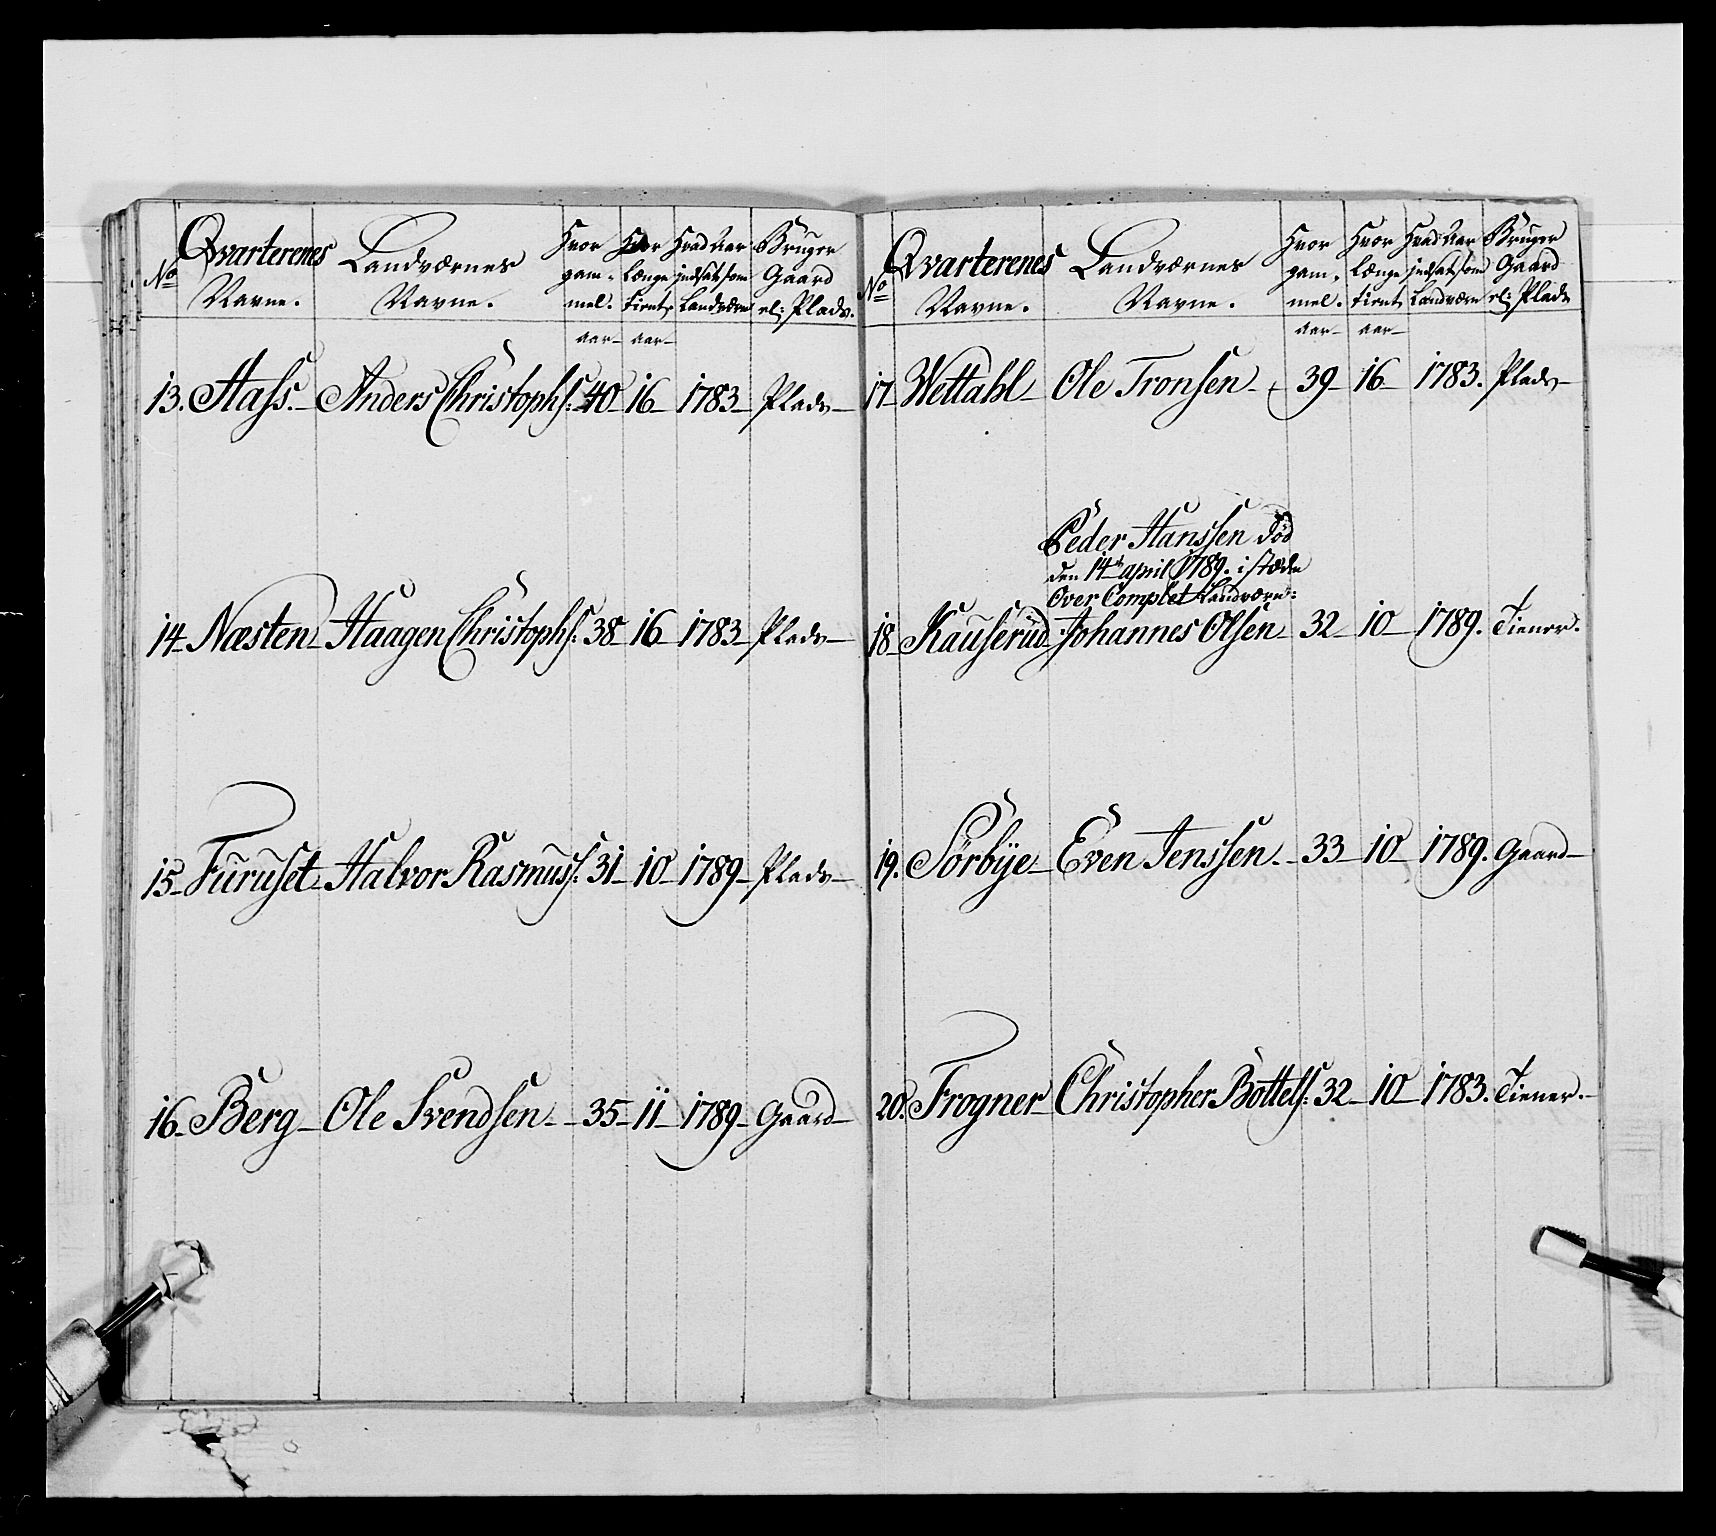 No Qvarterenes Navne. Landværnes Navne. Hvor gam-mel. Hvor længe tient Hvad Aar indsat som Landværn Bruger Gaard el: Plads.
aar aar
13. Hass. Anders Christophs: 40 16 1783 Plads
14 Næsten Haagen Christophs: 38 16 1783 Plads
15 Furuset Halvor Rasmuss: 31 10 1789 Plads
16 Berg Ole Svendsen 35 11 1789 Gaard
No Qvarterenes Navne. Landværnes Navne. Hvor gam-mel. Hvor længe tient Hvad Aar indsat som Landværn Bruger Gaard el: Plads
aar aar
17 Wettahl Ole Tronsen 39 16 1783. Plads
Peder Hanssen död
den 14de april 1789. i stæden
Over Complet Landværn:
18 Kauserud Johannes Olsen 32 10 1789. Tiener.
19. Sörbye Even Jenssen 33 10 1789. Gaard
20. Frogner Christopher Bottels: 32 10 1783. Tiener.